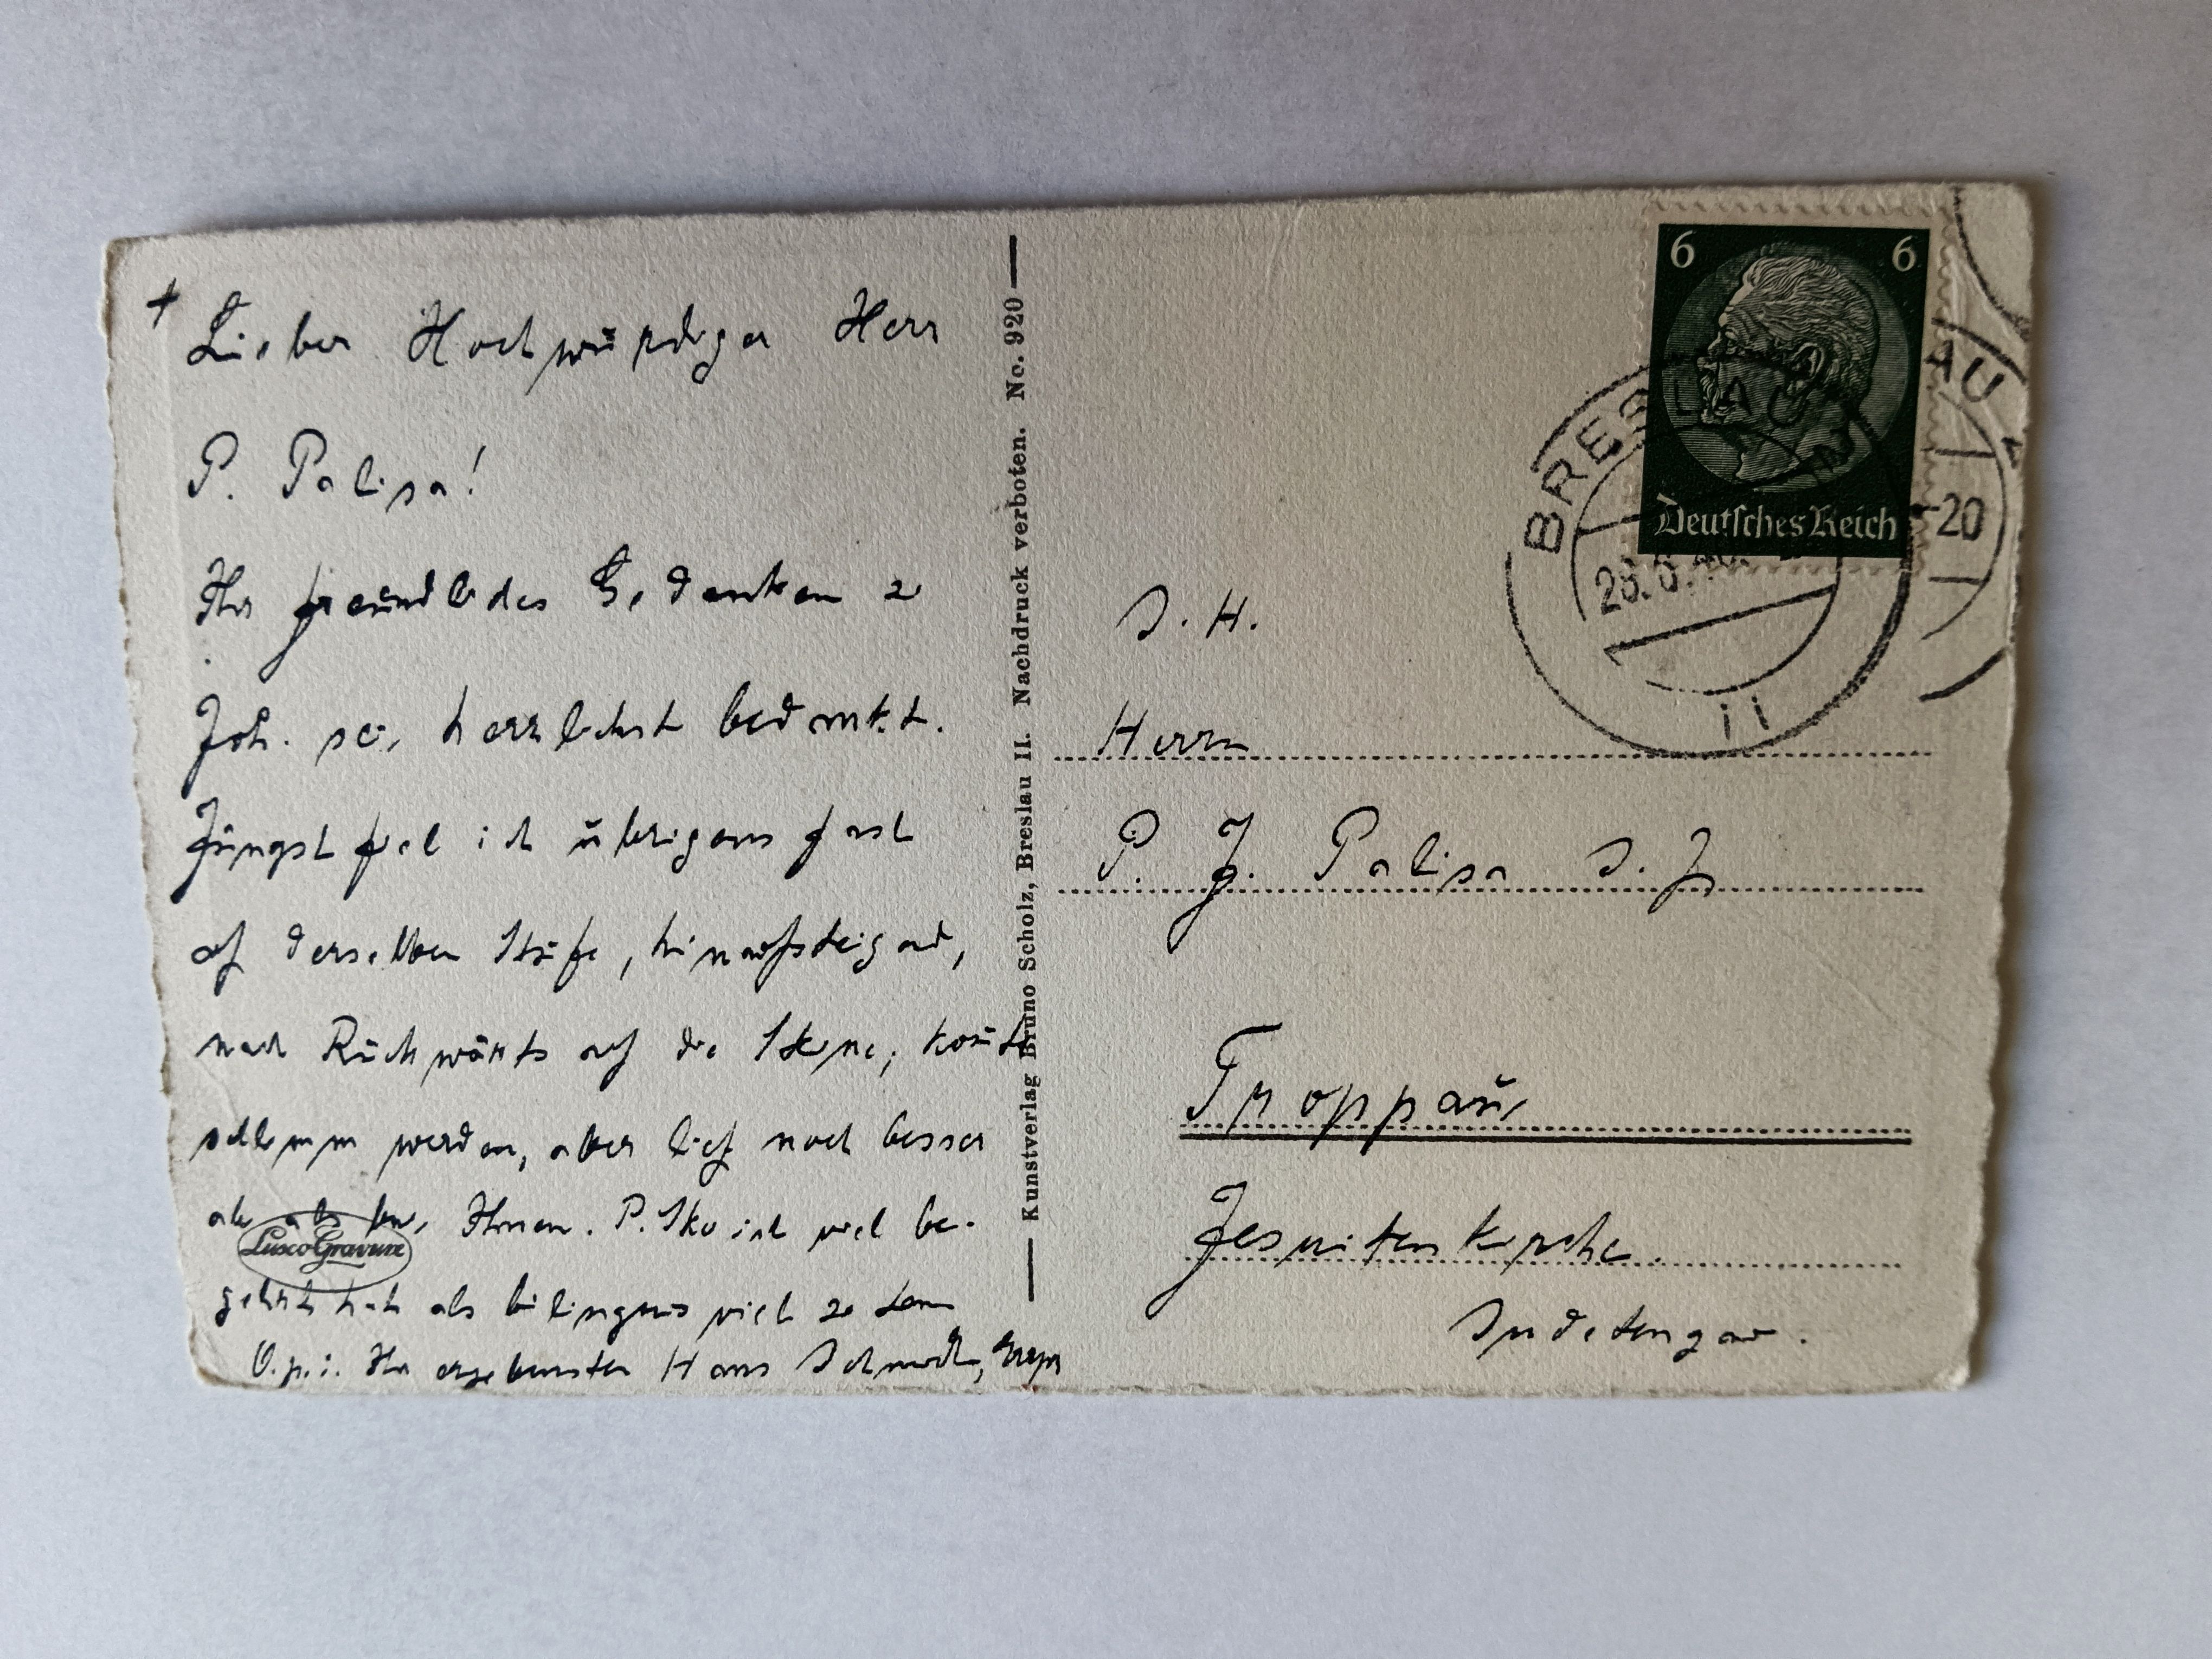 + Lieber Hochwürdiger Herr
P. Palisa!
Ihr freundliches Gedenken z
Joh. sei herzlichst bedankt.
Jüngst fiel ich übrigens fast
auf derselben Stufe, hinaufsteigend,
nach Rückwärts auf die Steine, konnte
schlimm werden, aber lief noch besser
ab als bei Ihnen. P. viel be-
gehrt hat als bilinguis viel zu tun
O.p.i. Ihr ergebenster Hans Schmidt,
LuxoGravure
Kunstverlag Bruno Scholz, Breslau II. Nachdruck verboten. No. 920
6 6
Deutsches Reich
BRESLAU
AU
-20
S. H.
Herrn
P. J. Palisa S. J.
Troppau,
Jesuitenkirche.
Sudetengau.